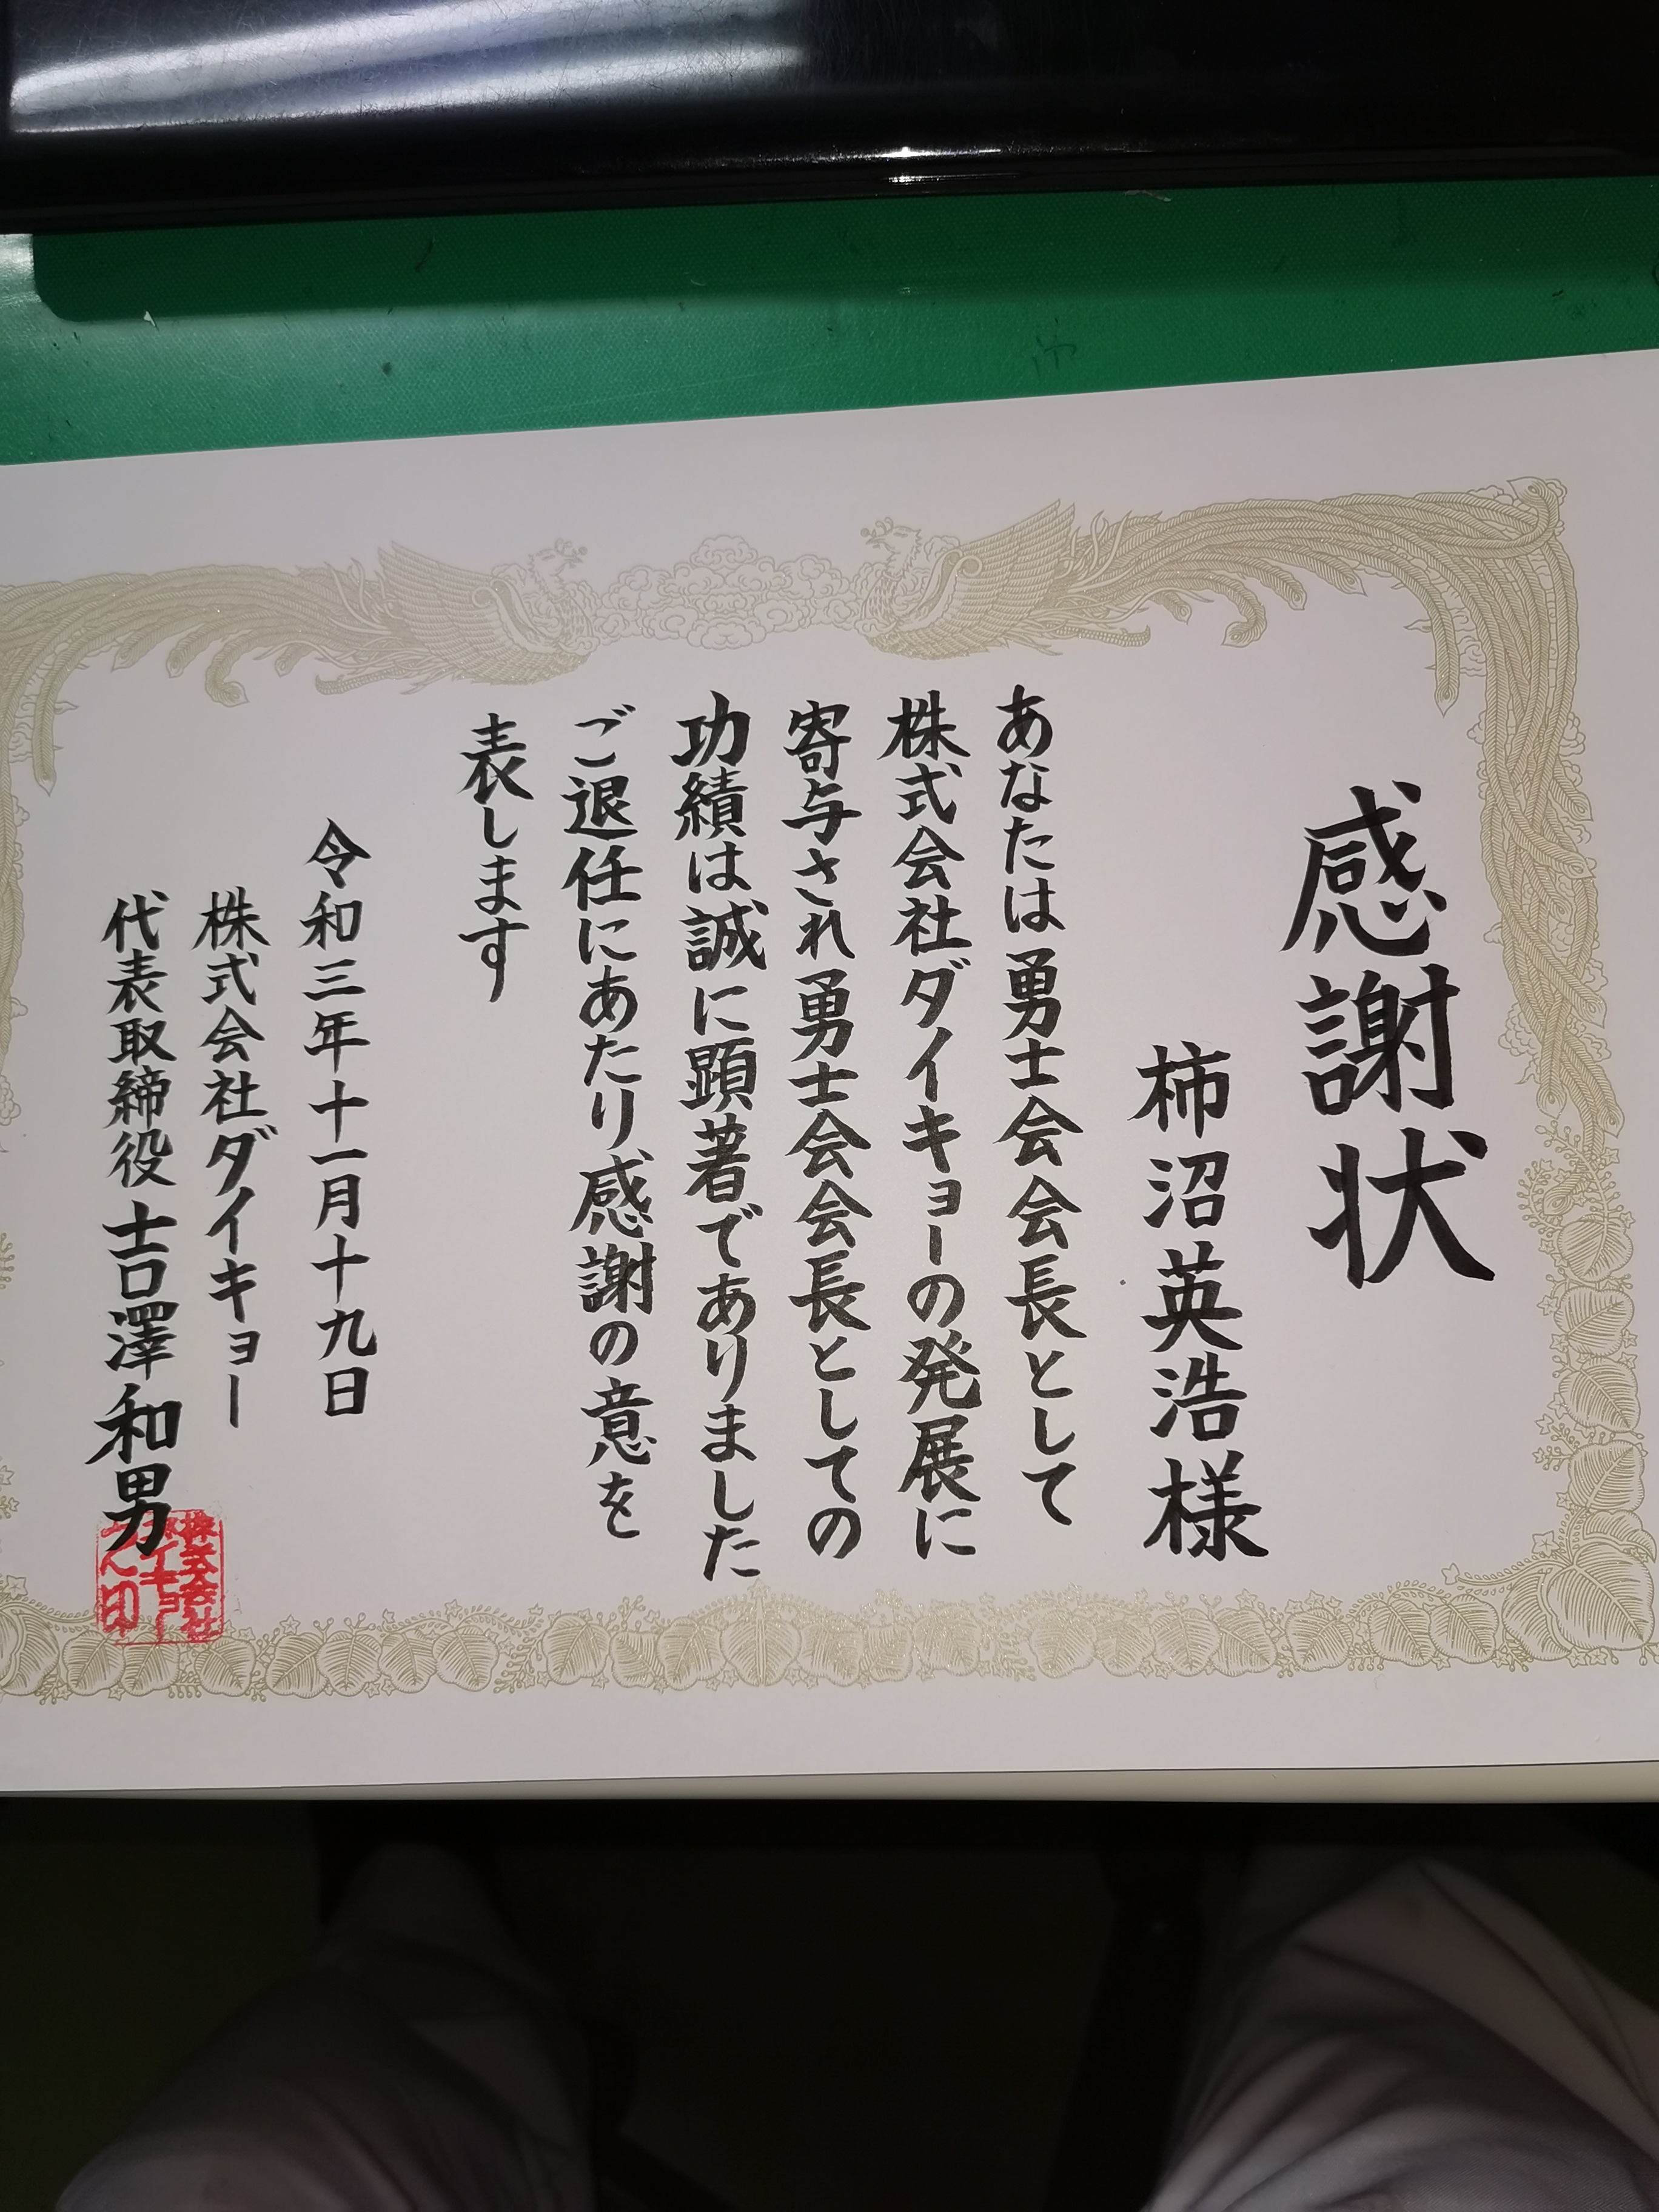 感謝状
柿沼英浩様
あなたは勇士会会長として
株式会社ダイキョーの発展に
寄与され勇士会会長としての
功績は誠に顕著でありました
ご退任にあたり感謝の意を
表します
令和三年十一月十九日
株式会社ダイキョー
代表取締役 吉澤和男
株式会社